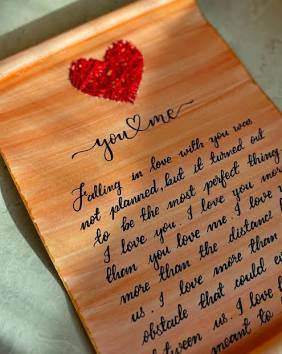 you♡me
Falling in love with you was
not planned, but it turned out
to be the most perfect thing
I love you. I love you more
than you love me. I love
more than the distance
us. I love more than
obstacle that could
us. I love
meant to